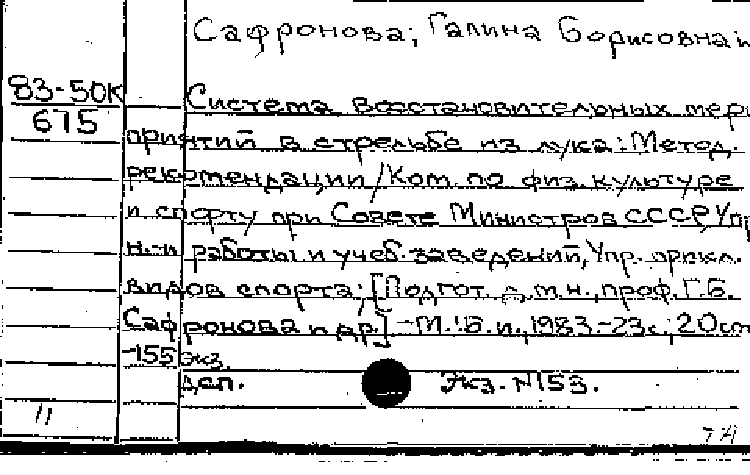 Сафронова; Галина Борисовна и
83-50К
675
Система восстановительных мер
приятий в стрельбе из лука: Метод.
рекомендации/Ком. по физ. культуре
и спорту при Совете Министров СССР, Упр
н.-и работы и учеб. заведений, Упр. прикл.
видов спорта; [Подгот. д.м.н., проф. Г.Б.
Сафронова и др.] -М.: Б.и., 1983.-23с.; 20см
-155 экз.
Деп. Экз. №153.
11